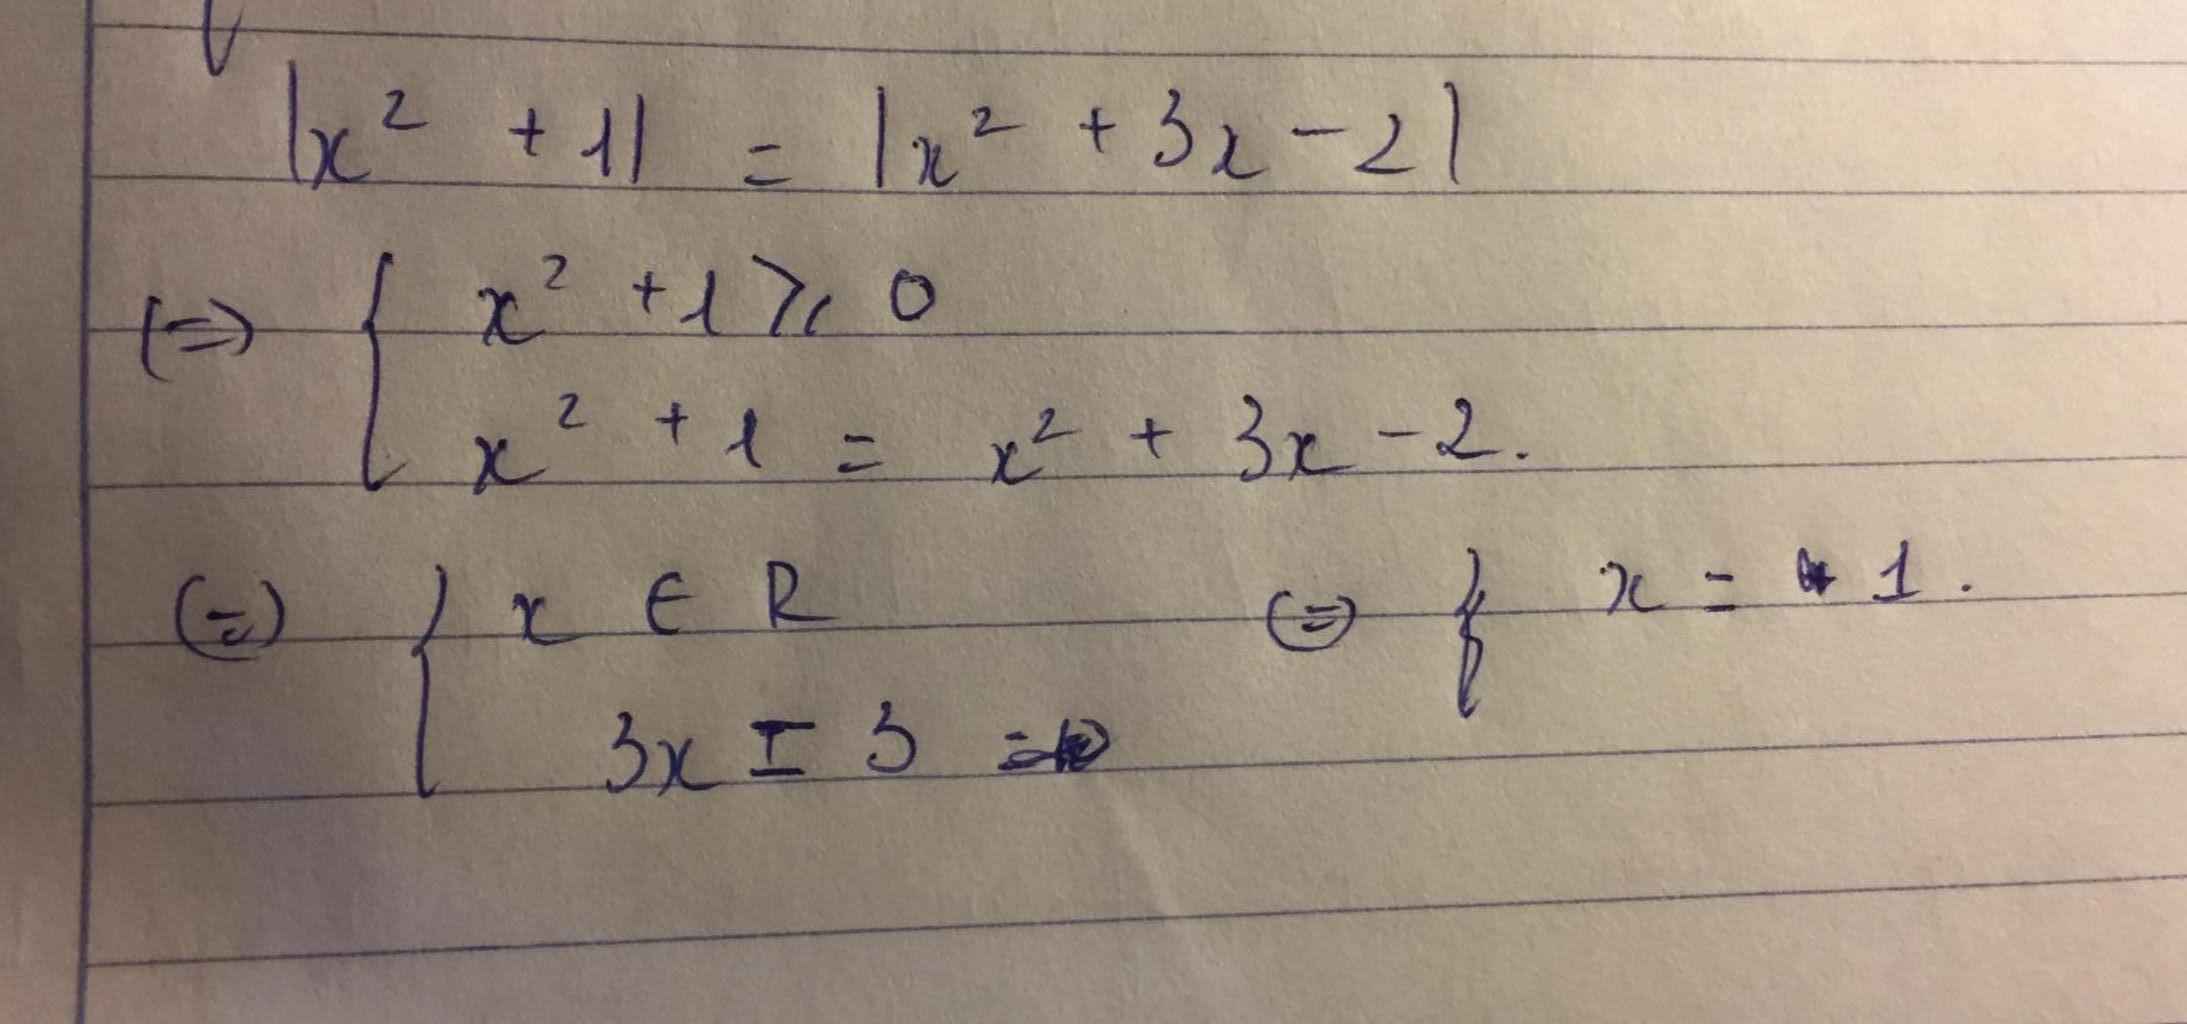 |x² + 1| = |x² + 3x - 2|
(=) { x² + 1 ⩾ 0
x² + 1 = x² + 3x - 2.
(=) { x ∈ R (=) { x = 1.
3x = 3